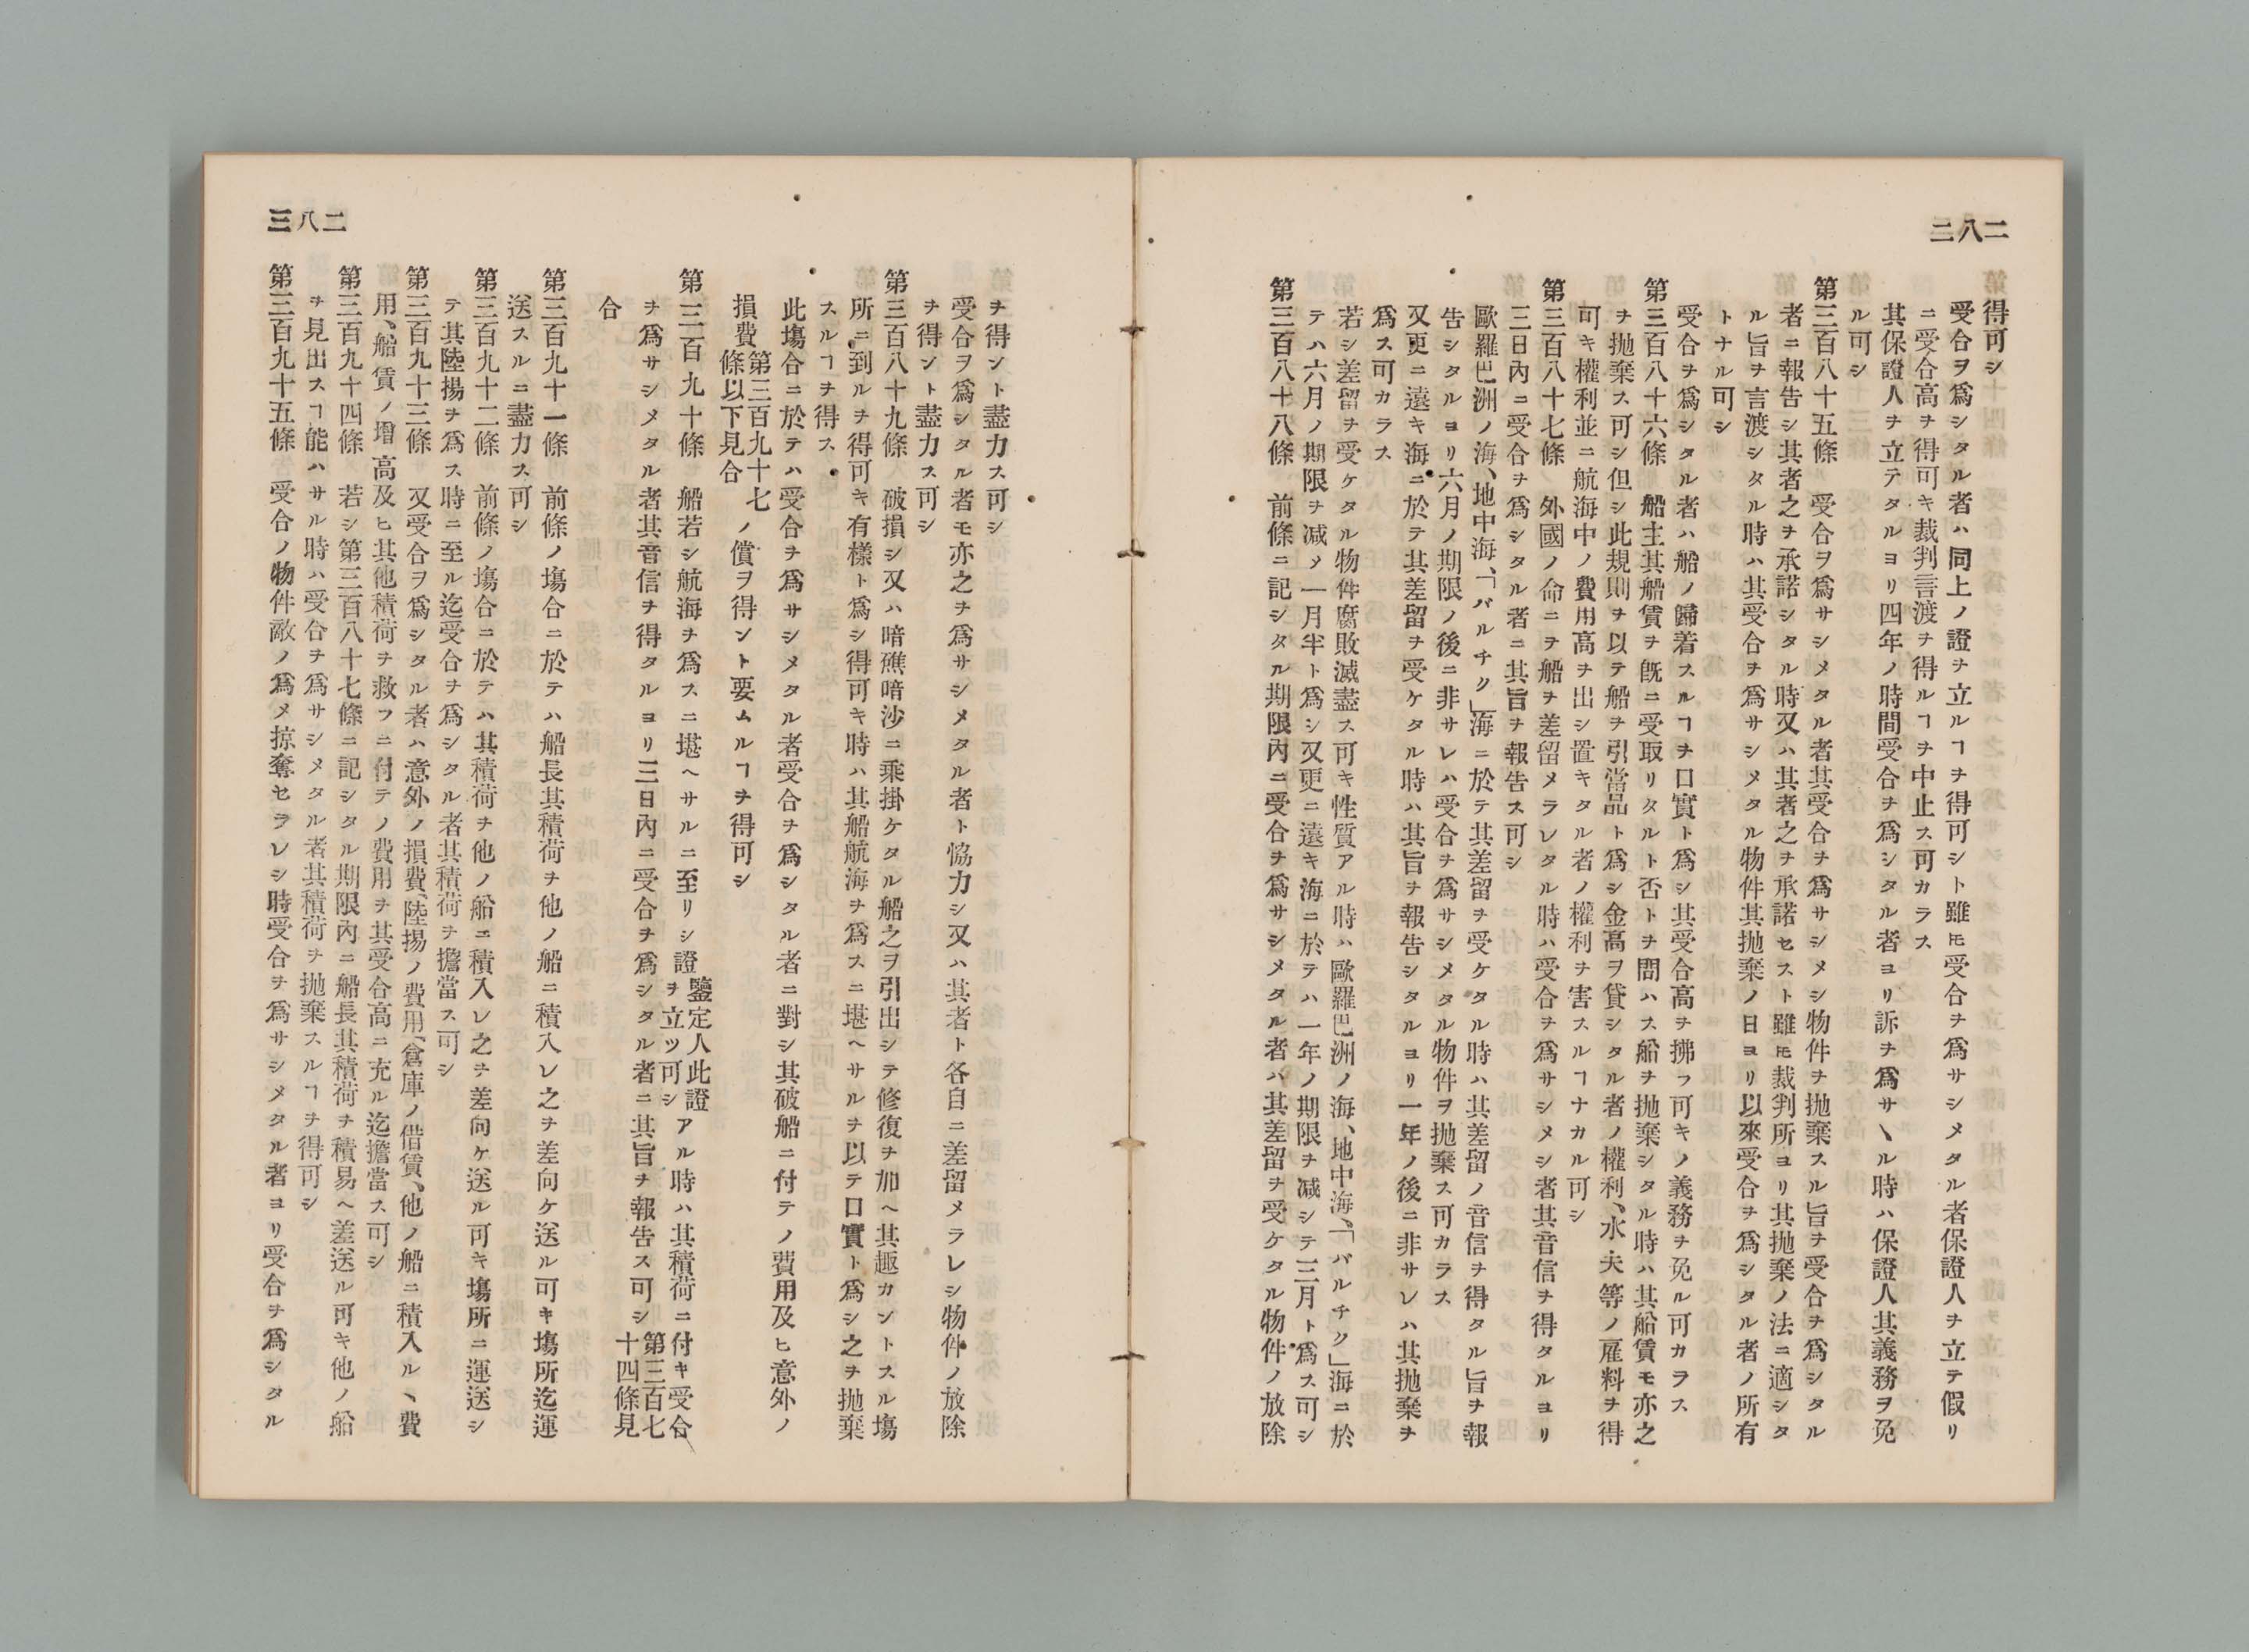 二八二
得可シ
受合ヲ爲シタル者ハ同上ノ證ヲ立ルヿヲ得可シト雖𪜈受合ヲ爲サシメタル者保證人ヲ立テ假リ
ニ受合高ヲ得可キ裁判言渡ヲ得ルヿヲ中止ス可カラス
其保證人ヲ立テタルヨリ四年ノ時間受合ヲ爲シタル者ヨリ訴ヲ爲サヽル時ハ保證人其義務ヲ免
ル可シ
第三百八十五條 受合ヲ爲サシメタル者其受合ヲ爲サシメシ物件ヲ抛棄スル旨ヲ受合ヲ爲シタル
者ニ報告シ其者之ヲ承諾シタル時又ハ其者之ヲ承諾セスト雖𪜈裁判所ヨリ其抛棄ノ法ニ適シタ
ル旨ヲ言渡シタル時ハ其受合ヲ爲サシメタル物件其抛棄ノ日ヨリ以來受合ヲ爲シタル者ノ所有
トナル可シ
受合ヲ爲シタル者ハ船ノ歸着スルヿヲ口實ト爲シ其受合高ヲ拂フ可キノ義務ヲ免ル可カラス
第三百八十六條 船主其船賃ヲ旣ニ受取リタルト否トヲ問ハス船ヲ抛棄シタル時ハ其船賃モ亦之
ヲ抛棄ス可シ但シ此規則ヲ以テ船ヲ引當品ト爲シ金高ヲ貸シタル者ノ權利、水夫等ノ雇料ヲ得
可キ權利並ニ航海中ノ費用高ヲ出シ置キタル者ノ權利ヲ害スルヿナカル可シ
第三百八十七條 外國ノ命ニヲ船ヲ差留メラレタル時ハ受合ヲ爲サシメシ者其音信ヲ得タルヨリ
三日內ニ受合ヲ爲シタル者ニ其旨ヲ報告ス可シ
歐羅巴洲ノ海、地中海、「バルチク」海ニ於テ其差留ヲ受ケタル時ハ其差留ノ音信ヲ得タル旨ヲ報
告シタルヨリ六月ノ期限ノ後ニ非サレハ受合ヲ爲サシメタル物件ヲ抛棄ス可カラス
又更ニ遠キ海ニ於テ其差留ヲ受ケタル時ハ其旨ヲ報告シタルヨリ一年ノ後ニ非サレハ其抛棄ヲ
爲ス可カラス
若シ差留ヲ受ケタル物件腐敗滅盡ス可キ性質アル時ハ歐羅巴洲ノ海、地中海、「バルチク」海ニ於
テハ六月ノ期限ヲ減メ一月半ト爲シ又更ニ遠キ海ニ於テハ一年ノ期限ヲ減シテ三月ト爲ス可シ
第三百八十八條 前條ニ記シタル期限內ニ受合ヲ爲サシメタル者ハ其差留ヲ受ケタル物件ノ放除
三八二
ヲ得ント盡力ス可シ
受合ヲ爲シタル者モ亦之ヲ爲サシメタル者ト恊力シ又ハ其者ト各自ニ差留メラレシ物件ノ放除
ヲ得ント盡力ス可シ
第三百八十九條 破損シ又ハ暗礁暗沙ニ乘掛ケタル船之ヲ引出シテ修復ヲ加ヘ其趣カントスル塲
所ニ到ルヲ得可キ有樣ト爲シ得可キ時ハ其船航海ヲ爲スニ堪ヘサルヲ以テ口實ト爲シ之ヲ抛棄
スルヿヲ得ス
此塲合ニ於テハ受合ヲ爲サシメタル者受合ヲ爲シタル者ニ對シ其破船ニ付テノ費用及ヒ意外ノ
損費 第三百九十七條以下見合 ノ償ヲ得ント要ムルヿヲ得可シ
第三百九十條 船若シ航海ヲ爲スニ堪ヘサルニ至リシ證 鑒定人此證ヲ立ツ可シ アル時ハ其積荷ニ付キ受合
ヲ爲サシメタル者其音信ヲ得タルヨリ三日內ニ受合ヲ爲シタル者ニ其旨ヲ報告ス可シ 第三百七十四條見
合
第三百九十一條 前條ノ塲合ニ於テハ船長其積荷ヲ他ノ船ニ積入レ之ヲ差向ケ送ル可キ塲所迄運
送スルニ盡力ス可シ
第三百九十二條 前條ノ塲合ニ於テハ其積荷ヲ他ノ船ニ積入レ之ヲ差向ケ送ル可キ塲所ニ運送シ
テ其陸揚ヲ爲ス時ニ至ル迄受合ヲ爲シタル者其積荷ヲ擔當ス可シ
第三百九十三條 又受合ヲ爲シタル者ハ意外ノ損費、陸揚ノ費用、倉庫ノ借賃、他ノ船ニ積入ルヽ費
用、船賃ノ增高及ヒ其他積荷ヲ救フニ付テノ費用ヲ其受合高ニ充ル迄擔當ス可シ
第三百九十四條 若シ第三百八十七條ニ記シタル期限內ニ船長其積荷ヲ積易ヘ差送ル可キ他ノ船
ヲ見出スヿ能ハサル時ハ受合ヲ爲サシメタル者其積荷ヲ抛棄スルヿヲ得可シ
第三百九十五條 受合ノ物件敵ノ爲メ掠奪セラレシ時受合ヲ爲サシメタル者ヨリ受合ヲ爲シタル